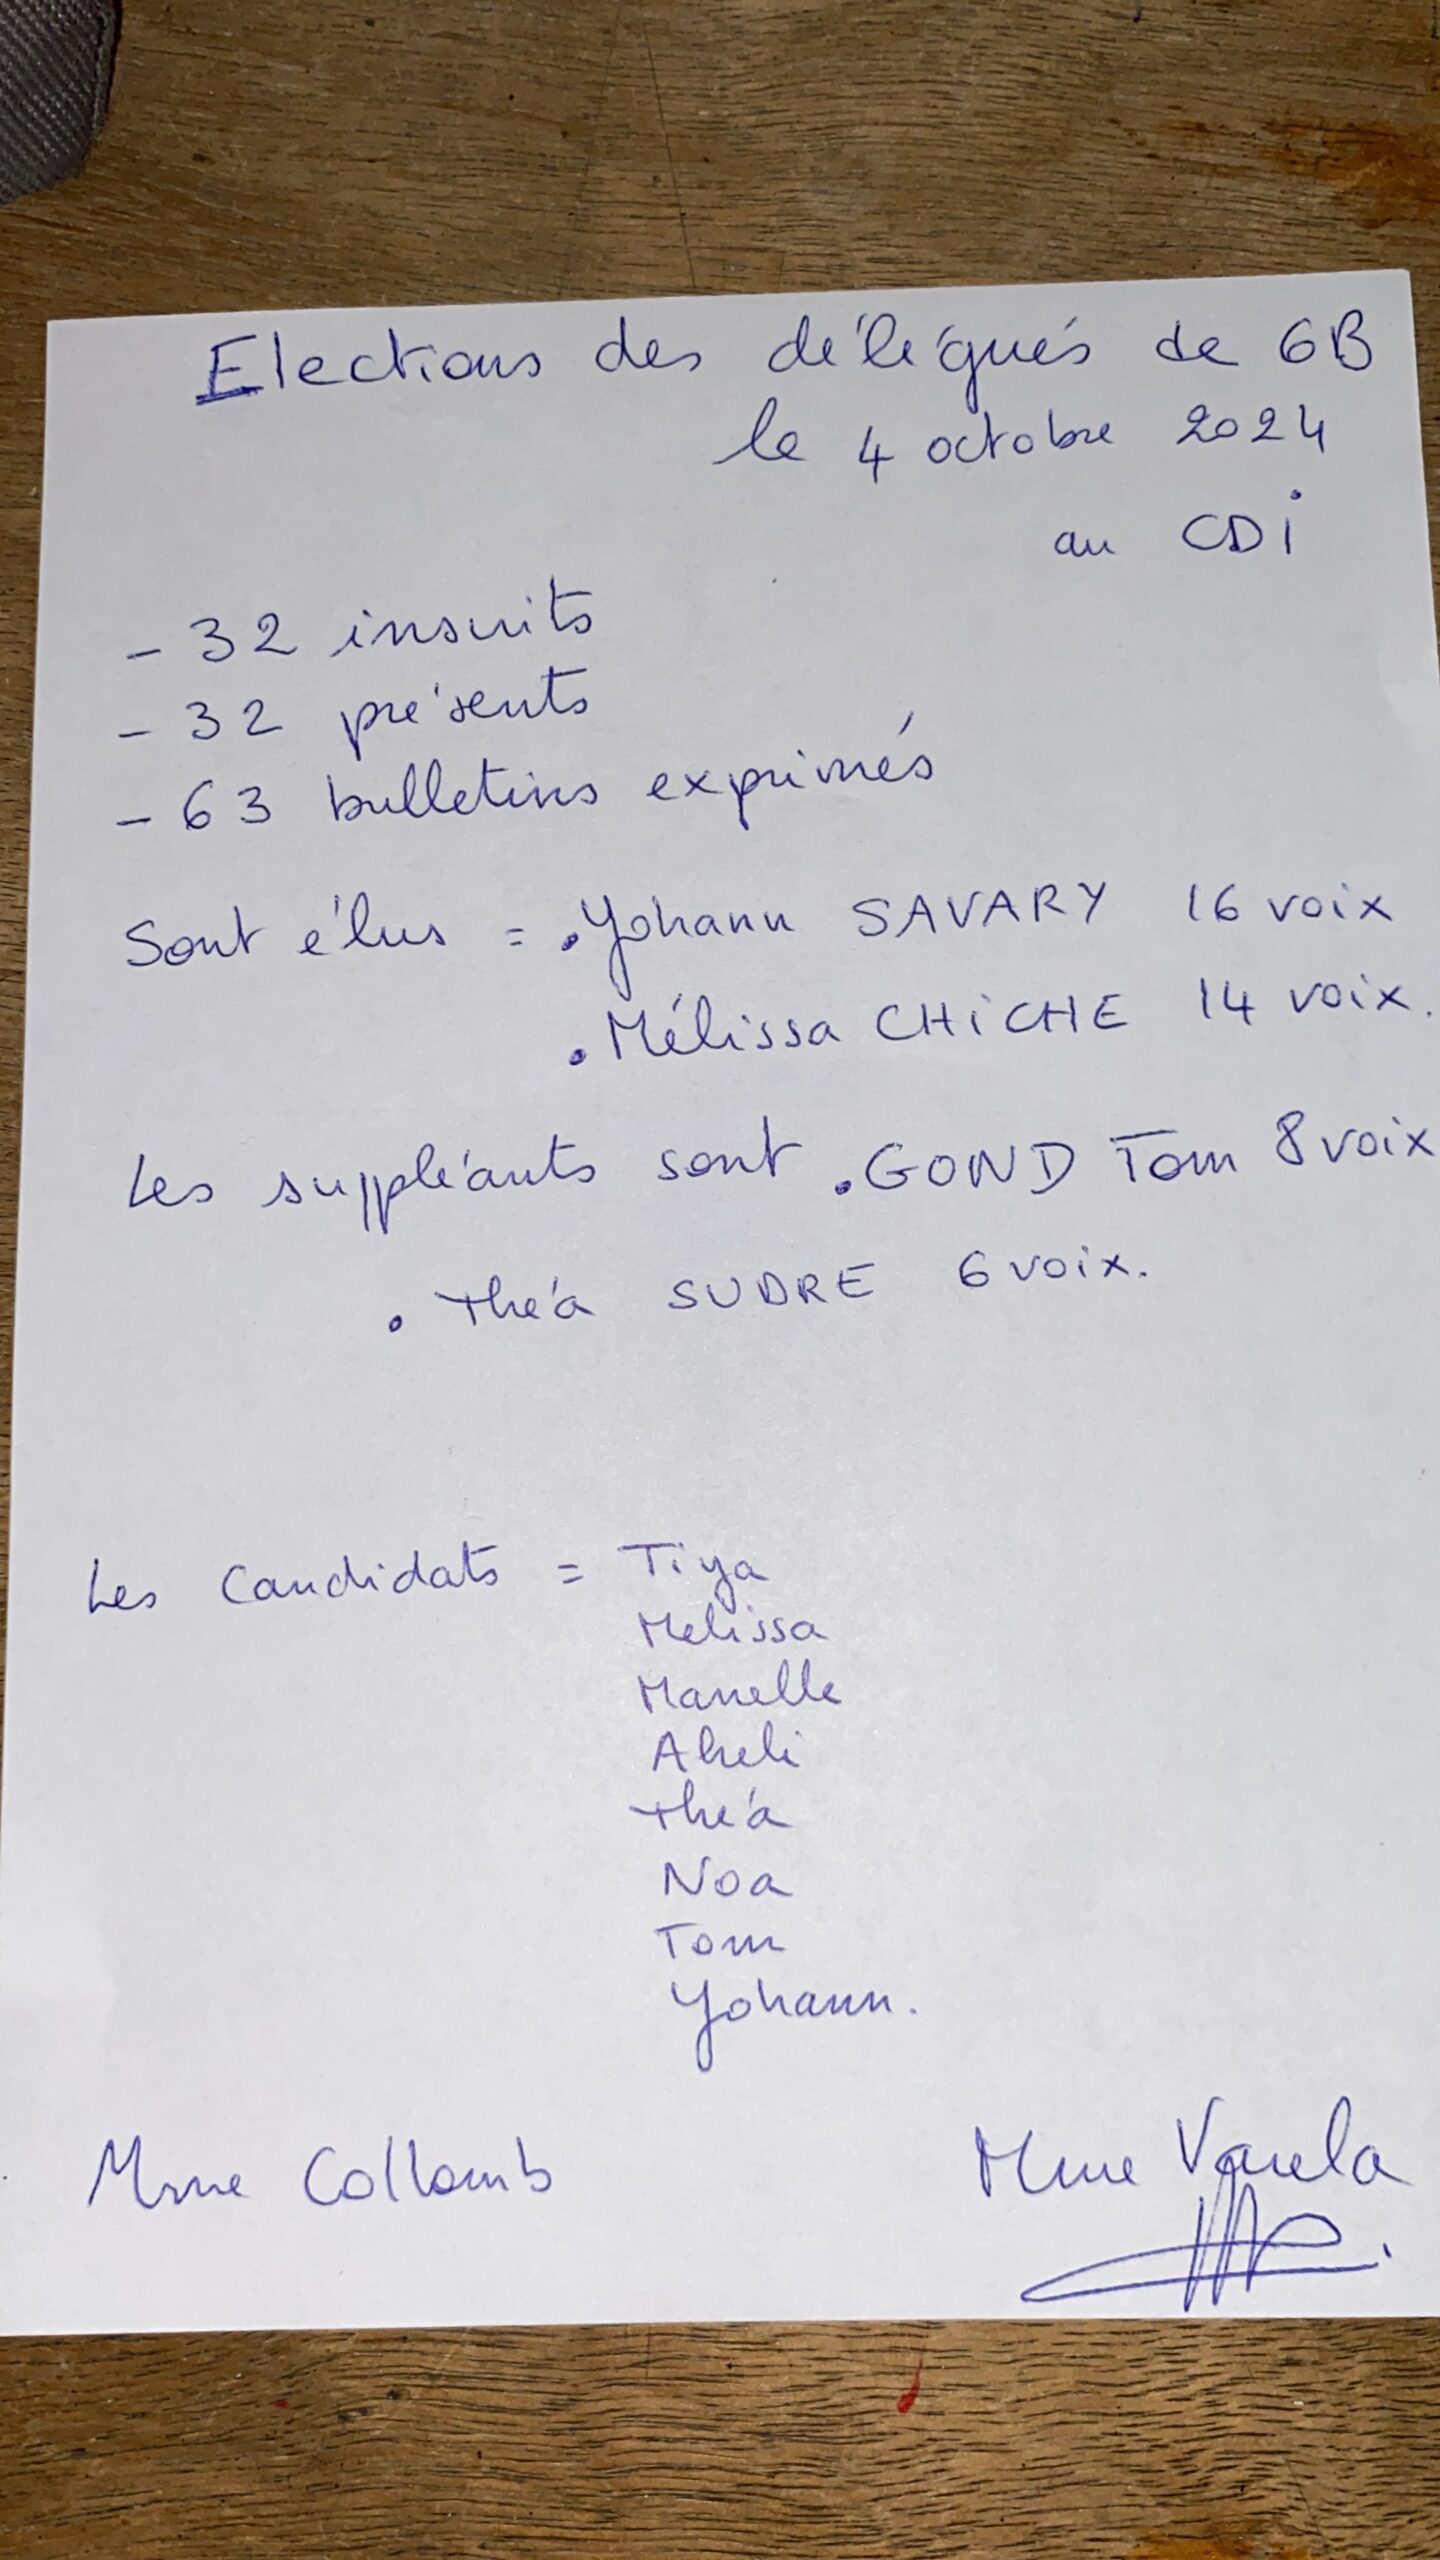 Elections des délégués de 6B
le 4 octobre 2024
au CDi
- 32 inscrits
- 32 présents
- 63 bulletins exprimés
Sont élus = . Yohann SAVARY 16 voix
. Mélissa CHiCHE 14 voix.
Les suppléants sont . GOND Tom 8 voix
. Théa SUDRE 6 voix.
Les Candidats = Tiya
Melissa
Manelle
Aheli
Théa
Noa
Tom
Yohann.
Mme Collomb Mme Varela